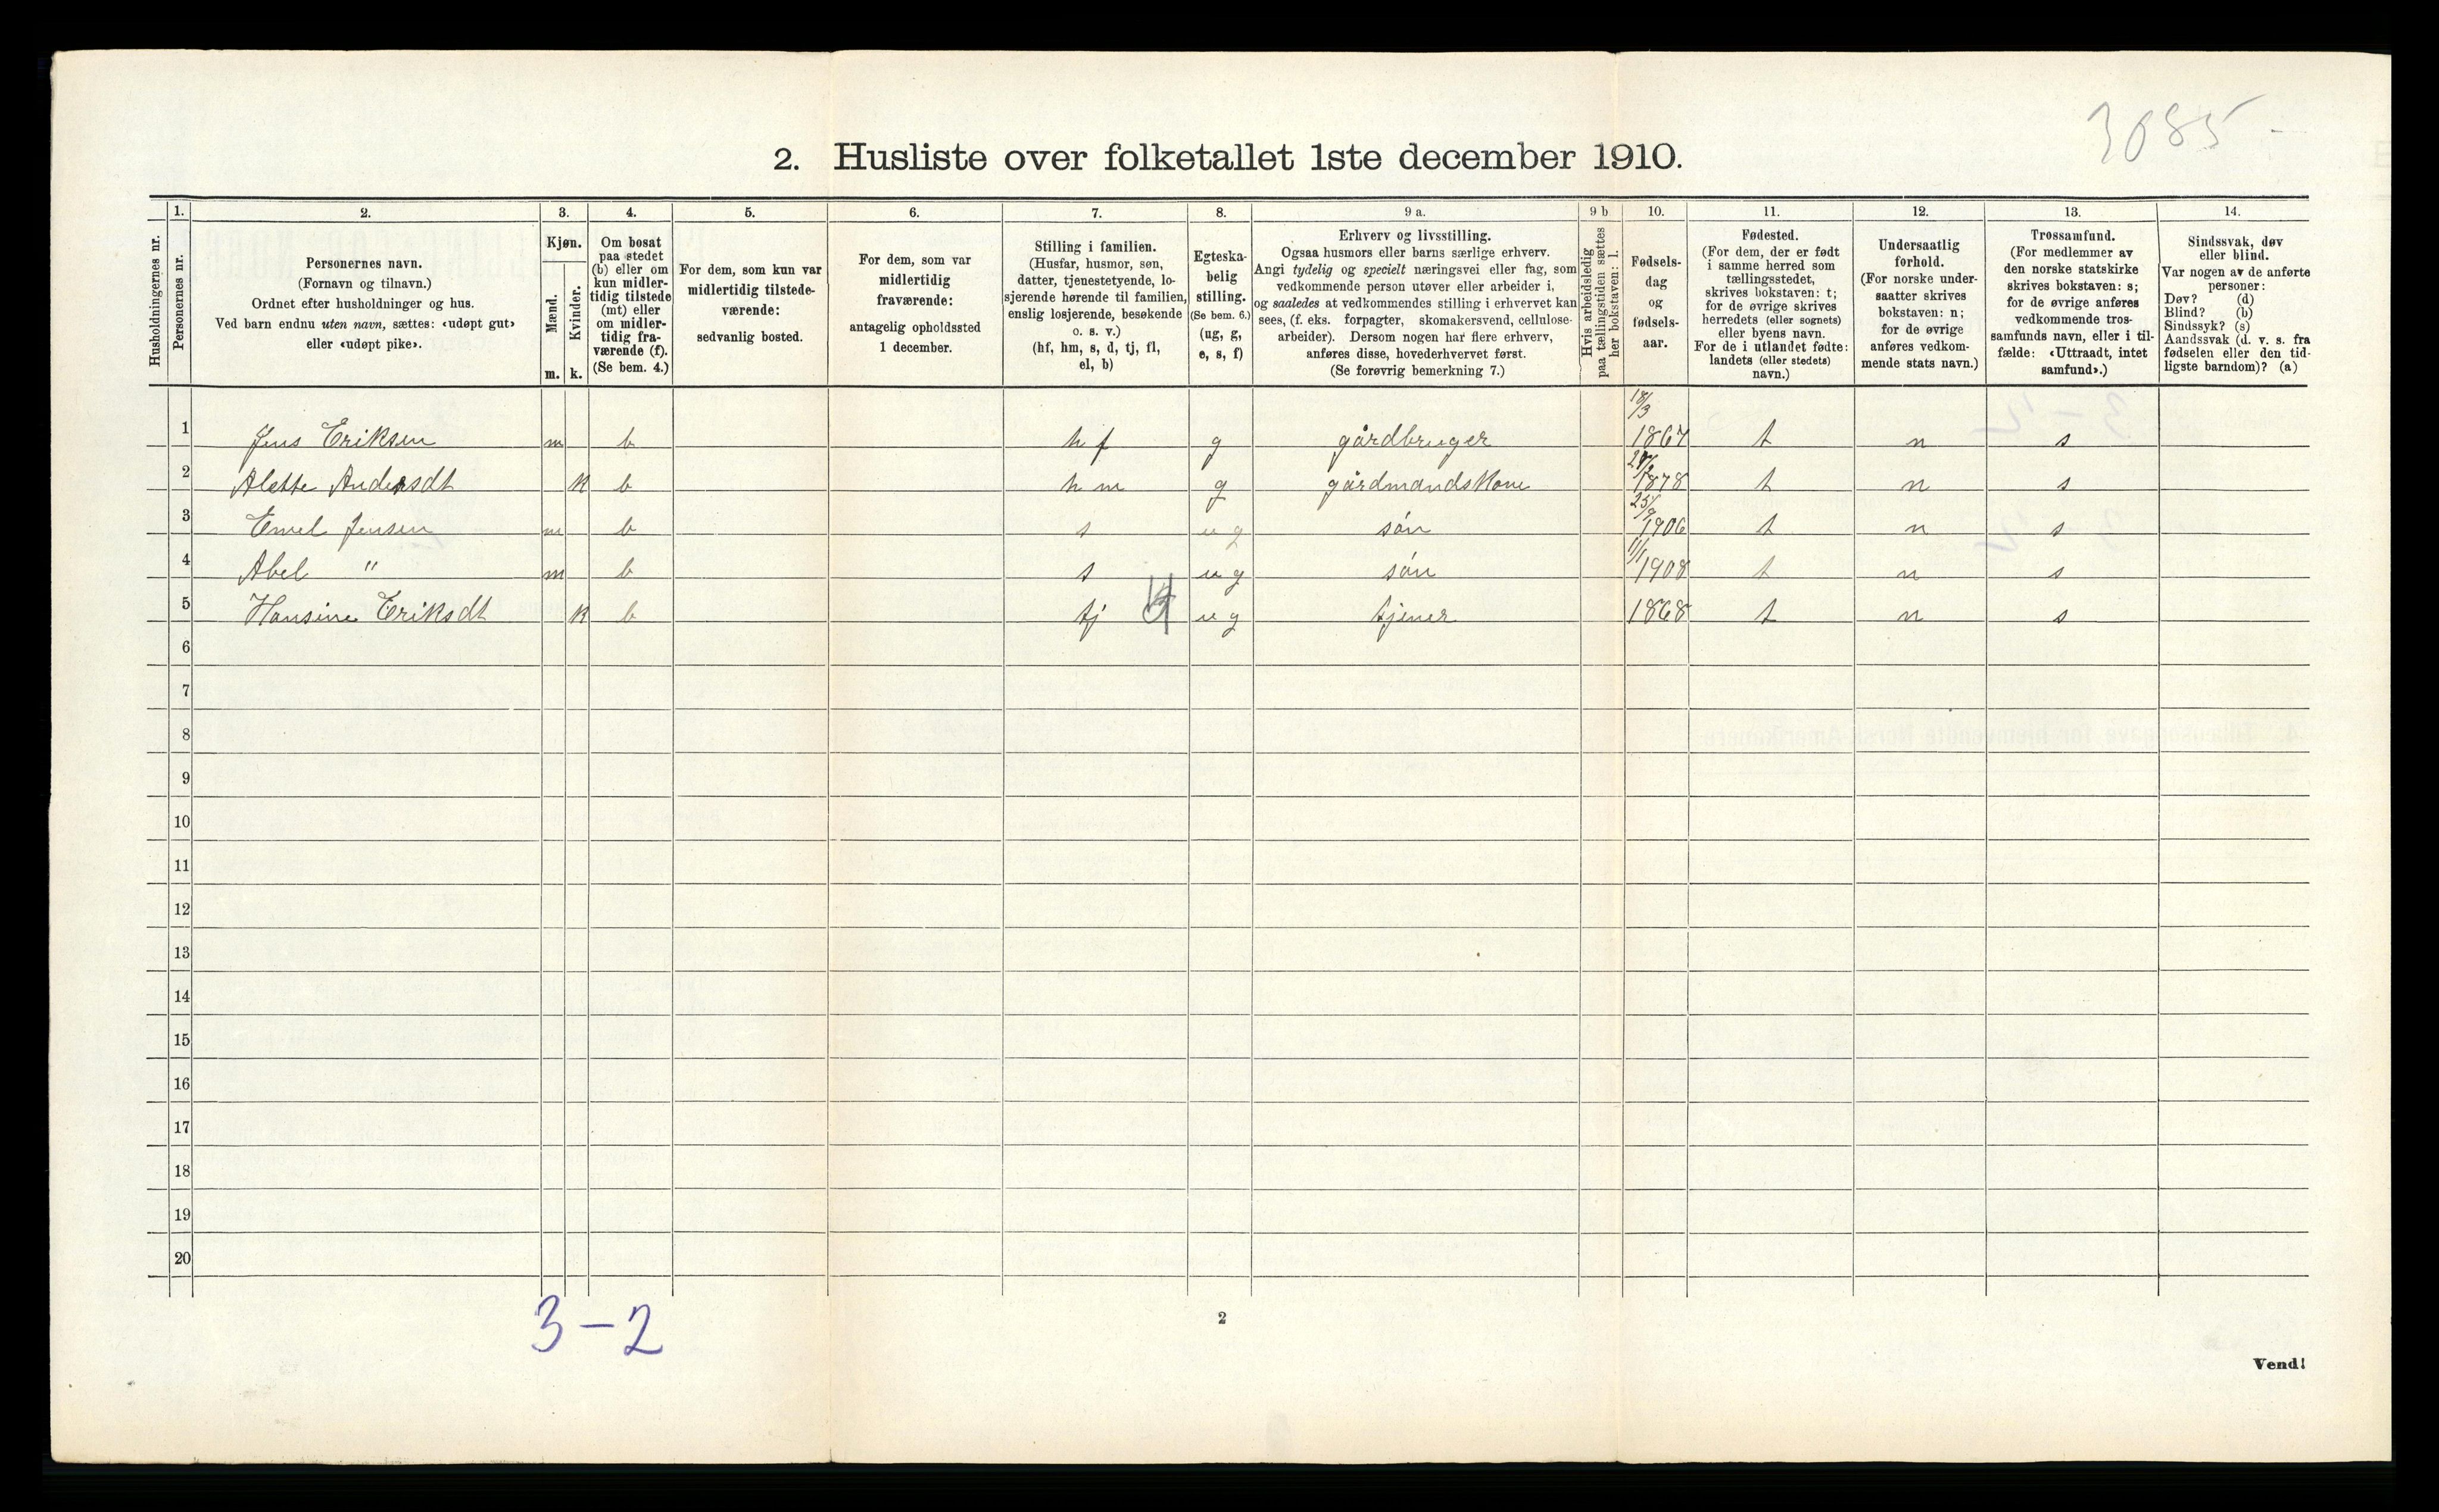 3085
2. Husliste over folketallet 1ste december 1910.
Husholdningernes nr.
1. Personernes nr.
2. Personernes navn.
(Fornavn og tilnavn.)
Ordnet efter husholdninger og hus.
Ved barn endnu uten navn, sættes: «udøpt gut»
eller «udøpt pike».
3. Kjøn.
Mænd. m.
Kvinder. k.
4. Om bosat
paa stedet
(b) eller om
kun midler-
tidig tilstede
(mt) eller
om midler-
tidig fra-
værende (f).
(Se bem. 4.)
5. For dem, som kun var
midlertidig tilstede-
værende:
sedvanlig bosted.
6. For dem, som var
midlertidig
fraværende:
antagelig opholdssted
1 december.
7. Stilling i familien.
(Husfar, husmor, søn,
datter, tjenestetyende, lo-
sjerende hørende til familien,
enslig losjerende, besøkende
o. s. v.)
(hf, hm, s, d, tj, fl,
el, b)
8. Egteska-
belig
stilling.
(Se bem. 6.)
(ug, g,
e, s, f)
9 a. Erhverv og livsstilling.
Ogsaa husmors eller barns særlige erhverv.
Angi tydelig og specielt næringsvei eller fag, som
vedkommende person utøver eller arbeider i,
og saaledes at vedkommendes stilling i erhvervet kan
sees, (f. eks. forpagter, skomakersvend, cellulose-
arbeider). Dersom nogen har flere erhverv,
anføres disse, hovederhvervet først.
(Se forøvrig bemerkning 7.)
9 b Hvis arbeidsledig
paa tællingstiden sættes
her bokstaven: l.
10. Fødsels-
dag
og
fødsels-
aar.
11. Fødested.
(For dem, der er født
i samme herred som
tællingsstedet,
skrives bokstaven: t;
for de øvrige skrives
herredets (eller sognets)
eller byens navn.
For de i utlandet fødte:
landets (eller stedets)
navn.)
12. Undersaatlig
forhold.
(For norske under-
saatter skrives
bokstaven: n;
for de øvrige
anføres vedkom-
mende stats navn.)
13. Trossamfund.
(For medlemmer av
den norske statskirke
skrives bokstaven: s;
for de øvrige anføres
vedkommende tros-
samfunds navn, eller i til-
fælde: «Uttraadt, intet
samfund».)
14. Sindssvak, døv
eller blind.
Var nogen av de anførte
personer:
Døv? (d)
Blind? (b)
Sindssyk? (s)
Aandssvak (d. v. s. fra
fødselen eller den tid-
ligste barndom)? (a)
1 Jens Eriksen m b h f g gårdbruger 18/3 1867 t n s
2 Alette Andersdt k b h m g gårdmandskone 1878 t n s
3 Emel Jensen m b s u g søn 25/9 1906 t n s
4 Abel " m b s u g søn 11/1 1908 t n s
5 Hansine Eriksdt k b tj u g tjener 1868 t n s
6
7
8
9
10
11
12
13
14
15
16
17
18
19
20
3 - 2
2
Vend!